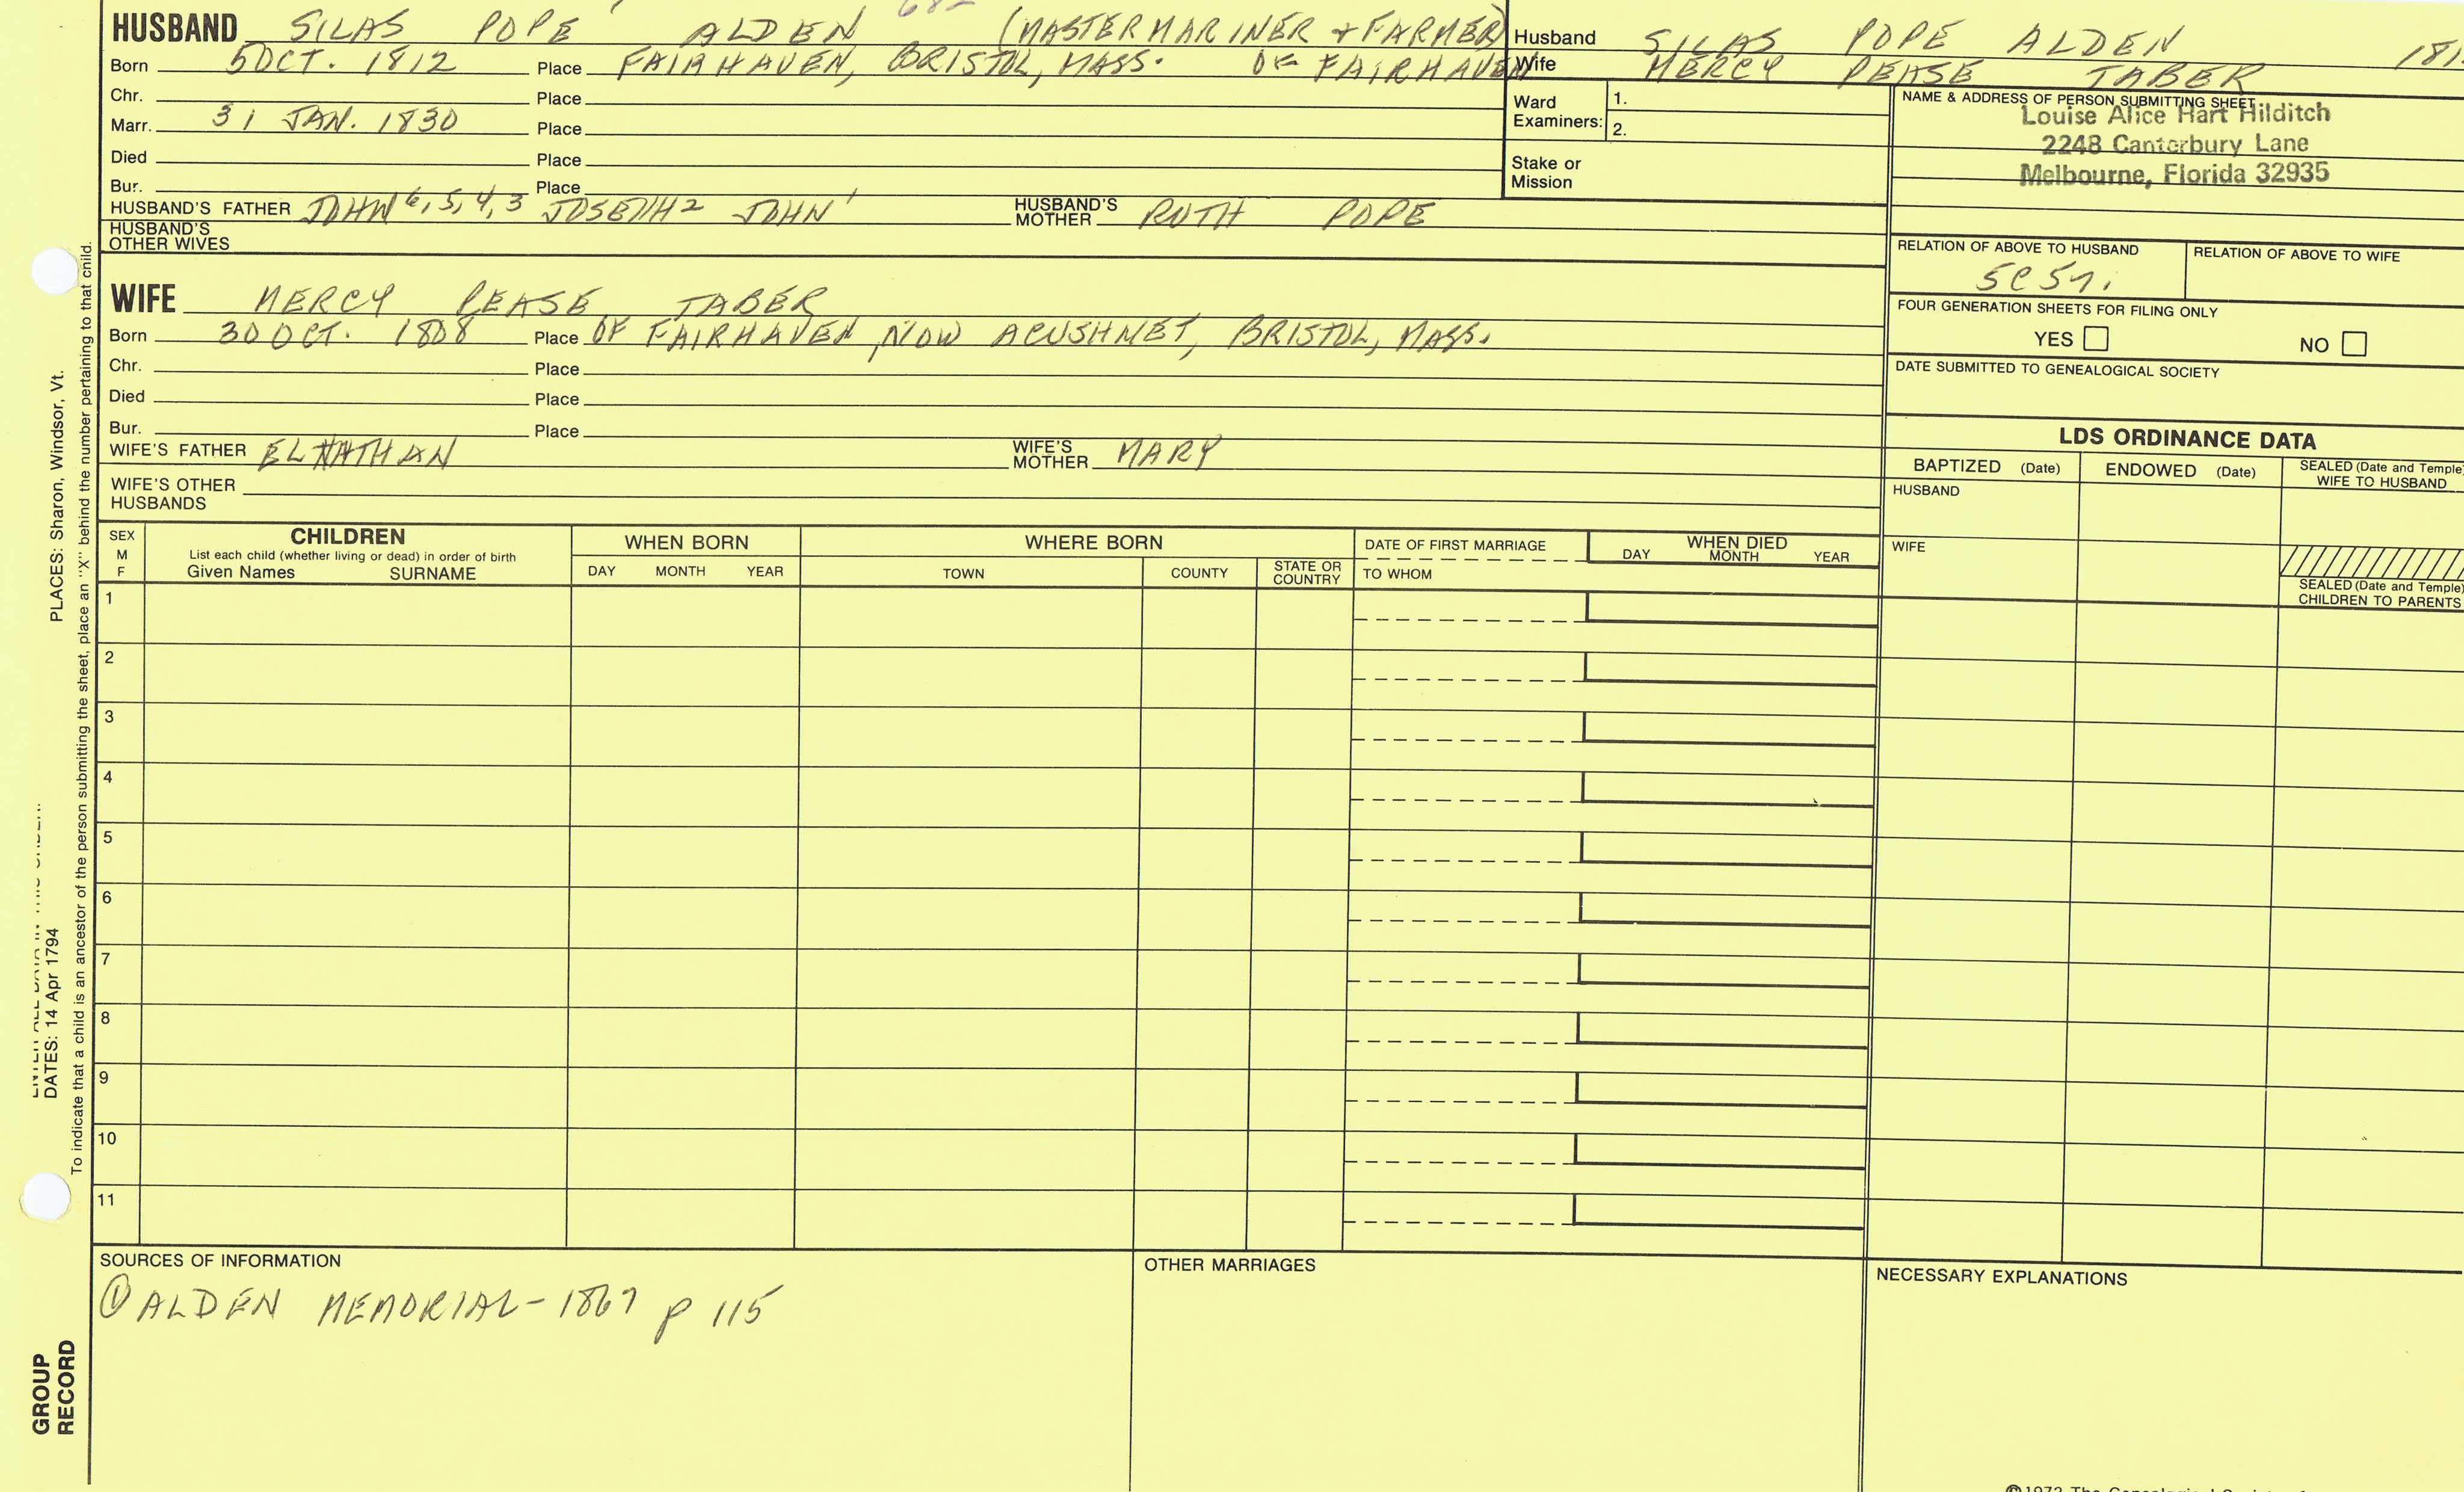 HUSBAND SILAS POPE ALDEN (MASTER MARINER + FARMER)
Born 5 OCT. 1812 Place FAIRHAVEN, BRISTOL, MASS. OF FAIRHAVEN
Chr. Place
Marr. 31 JAN. 1830 Place
Died Place
Bur. Place
HUSBAND'S FATHER JOHN 6, 5, 4, 3 JOSEPH 2 JOHN 1 HUSBAND'S MOTHER RUTH POPE
HUSBAND'S OTHER WIVES
Husband SILAS POPE ALDEN
Wife MERCY PEASE TABER
Ward Examiners: 1.
2.
Stake or Mission
NAME & ADDRESS OF PERSON SUBMITTING SHEET
Louise Alice Hart Hilditch
2248 Canterbury Lane
Melbourne, Florida 32935
RELATION OF ABOVE TO HUSBAND RELATION OF ABOVE TO WIFE
FOUR GENERATION SHEETS FOR FILING ONLY
YES NO
DATE SUBMITTED TO GENEALOGICAL SOCIETY
WIFE MERCY PEASE TABER
Born 30 OCT. 1808 Place OF FAIRHAVEN, NOW ACUSHNET, BRISTOL, MASS.
Chr. Place
Died Place
Bur. Place
WIFE'S FATHER ELNATHAN WIFE'S MOTHER MARY
WIFE'S OTHER HUSBANDS
LDS ORDINANCE DATA
BAPTIZED (Date) ENDOWED (Date) SEALED (Date and Temple) WIFE TO HUSBAND
HUSBAND
WIFE
SEALED (Date and Temple) CHILDREN TO PARENTS
SEX M F
CHILDREN
List each child (whether living or dead) in order of birth
Given Names SURNAME
WHEN BORN
DAY MONTH YEAR
WHERE BORN
TOWN COUNTY STATE OR COUNTRY
DATE OF FIRST MARRIAGE
TO WHOM
WHEN DIED
DAY MONTH YEAR
1
2
3
4
5
6
7
8
9
10
11
SOURCES OF INFORMATION
① ALDEN MEMORIAL - 1867 p 115
OTHER MARRIAGES
NECESSARY EXPLANATIONS
PLACES: Sharon, Windsor, Vt.
DATES: 14 Apr 1794
To indicate that a child is an ancestor of the person submitting the sheet, place an "X" behind the number pertaining to that child.
GROUP
RECORD